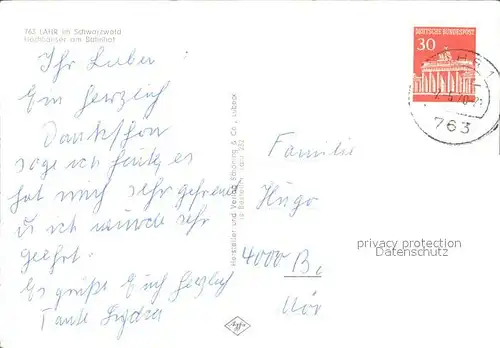 763 LAHR im Schwarzwald
Hochhäuser am Bahnhof
Ihr Lieben!
Ein herzlich
Dankschön
sage ich heute, es
hat mich sehr gefreut
u ich wurde sehr
geehrt.
Es grüßt Euch herzlich
Tante Lydia
Hersteller und Verlag Schöning & Co., Lübeck
Agfa
DEUTSCHE BUNDESPOST
30
763
Familie
Hugo
4000
privacy protection
Datenschutz